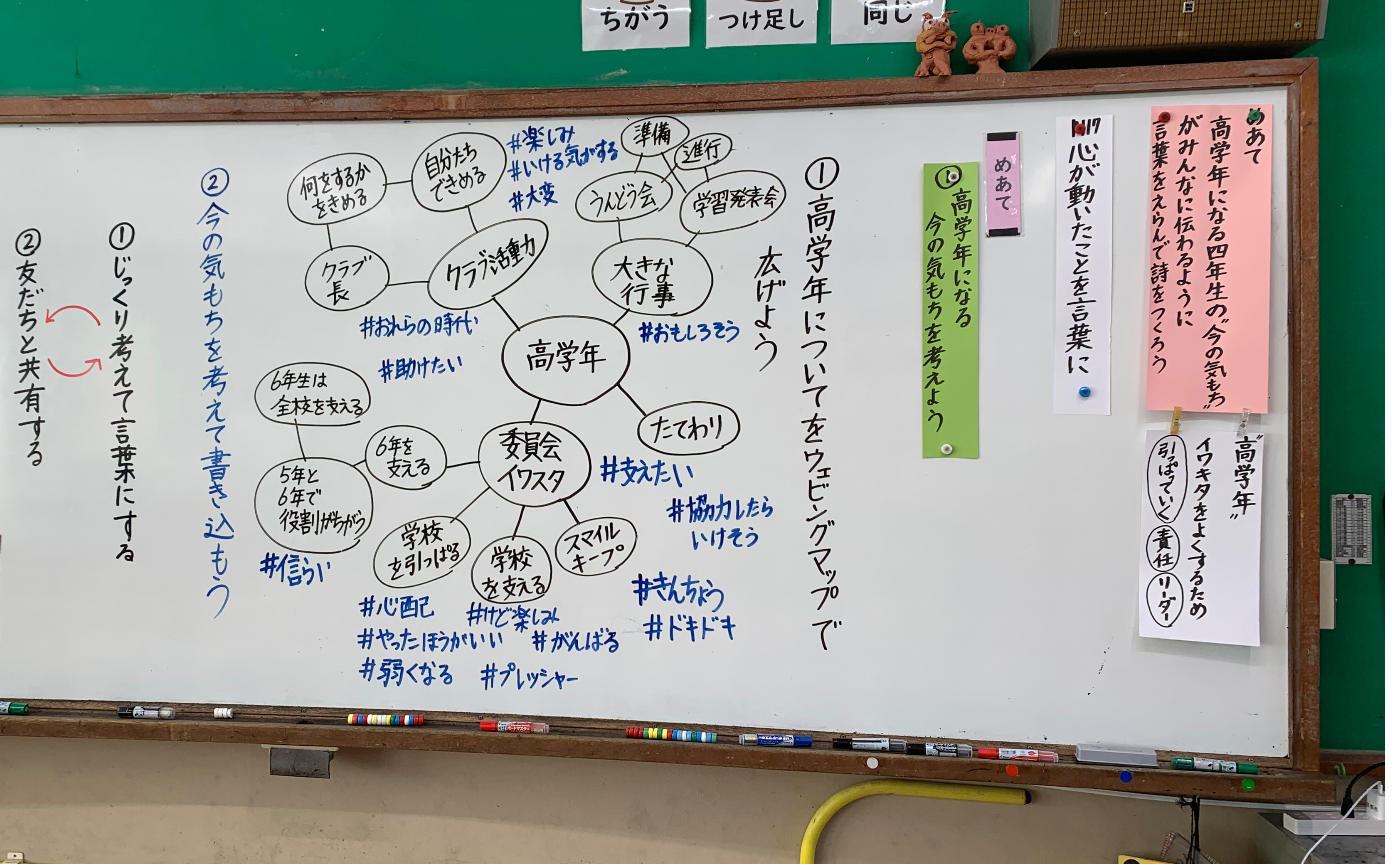 ちがう
つけ足し
同じ
めあて
高学年になる四年生の“今の気もち”
がみんなに伝わるように
言葉をえらんで詩をつくろう
“高学年”
イワキタをよくするため
引っぱっていく
責任
リーダー
心が動いたことを言葉に
めあて
①高学年になる
今の気もちを考えよう
①高学年についてをウェビングマップで
広げよう
準備
進行
うんどう会
学習発表会
大きな
行事
#おもしろそう
#楽しみ
#いける気がする
#大変
自分たち
できめる
何をするか
をきめる
クラブ
長
クラブ活動力
#おれらの時代
#助けたい
高学年
たてわり
委員会
イワスタ
#支えたい
#協力したら
いけそう
6年を
支える
6年生は
全校を支える
5年と
6年で
役割がちがう
#信らい
学校
を引っぱる
学校
を支える
スマイル
キープ
#心配
#けど楽しみ
#やったほうがいい
#がんばる
#弱くなる
#プレッシャー
#きんちょう
#ドキドキ
②今の気もちを考えて書き込もう
①じっくり考えて言葉にする
②友だちと共有する